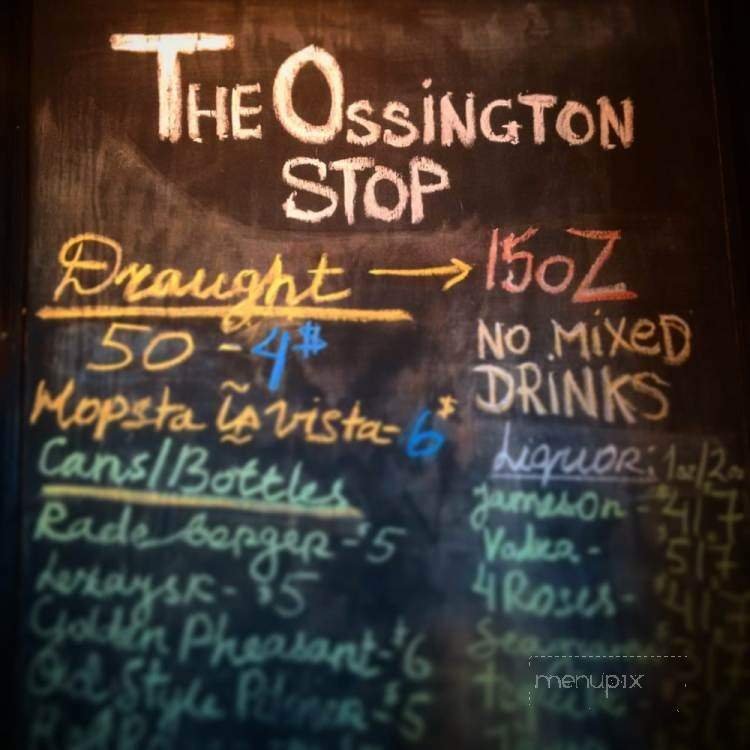 THE OSSINGTON
STOP
Draught → 15oZ
50 - 4$
Hopsta la vista - 6$
Cans/Bottles
Radeberger - $5
Lezaysk - $5
Golden Pheasant - $6
Old Style Pilsner - $5
NO MiXeD
DRiNKS
Liquor: 1oz/2oz
Jameson - $4/7
Vodka - $5/7
4 Roses - $4/7
menupix